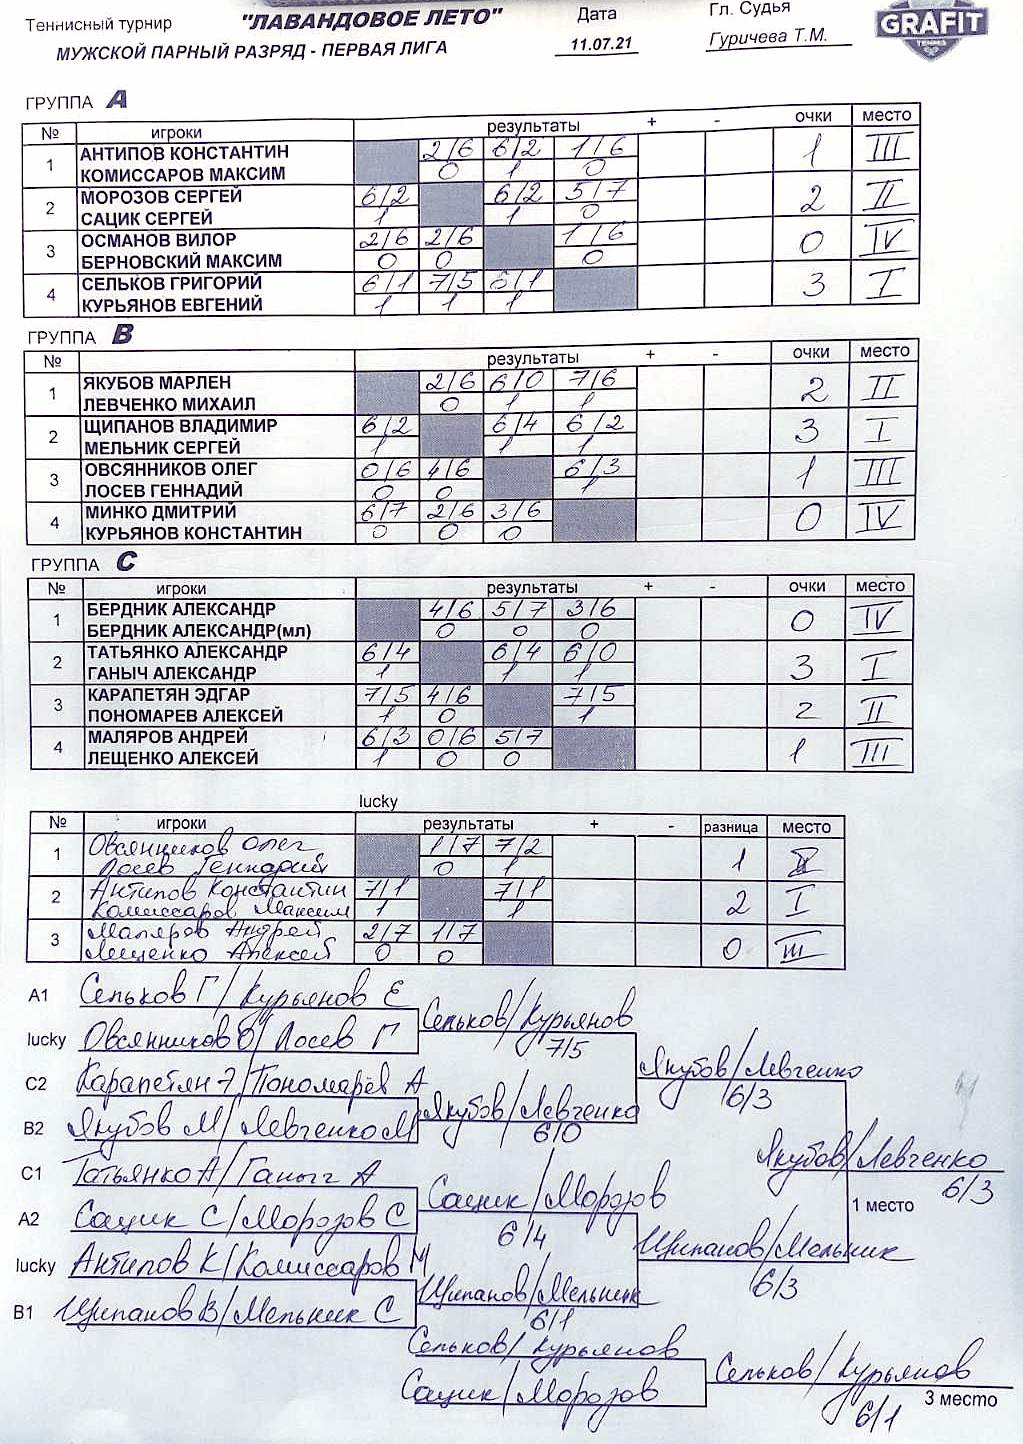 Теннисный турнир "ЛАВАНДОВОЕ ЛЕТО" Дата Гл. Судья
МУЖСКОЙ ПАРНЫЙ РАЗРЯД - ПЕРВАЯ ЛИГА 11.07.21 Гуричева Т.М.
GRAFIT
TENNIS
ГРУППА A
№ игроки результаты + - очки место
1 АНТИПОВ КОНСТАНТИН 2/6 6/2 1/6 1 III
КОМИССАРОВ МАКСИМ 0 1 0
2 МОРОЗОВ СЕРГЕЙ 6/2 6/2 5/7 2 II
САЦИК СЕРГЕЙ 1 1 0
3 ОСМАНОВ ВИЛОР 2/6 2/6 1/6 0 IV
БЕРНОВСКИЙ МАКСИМ 0 0 0
4 СЕЛЬКОВ ГРИГОРИЙ 6/1 7/5 6/1 3 I
КУРЬЯНОВ ЕВГЕНИЙ 1 1 1
ГРУППА B
№ результаты + - очки место
1 ЯКУБОВ МАРЛЕН 2/6 6/0 7/6 2 II
ЛЕВЧЕНКО МИХАИЛ 0 1 1
2 ЩИПАНОВ ВЛАДИМИР 6/2 6/4 6/2 3 I
МЕЛЬНИК СЕРГЕЙ 1 1 1
3 ОВСЯННИКОВ ОЛЕГ 0/6 4/6 6/3 1 III
ЛОСЕВ ГЕННАДИЙ 0 0 1
4 МИНКО ДМИТРИЙ 6/7 2/6 3/6 0 IV
КУРЬЯНОВ КОНСТАНТИН 0 0 0
ГРУППА C
№ игроки результаты + - очки место
1 БЕРДНИК АЛЕКСАНДР 4/6 5/7 3/6 0 IV
БЕРДНИК АЛЕКСАНДР(мл) 0 0 0
2 ТАТЬЯНКО АЛЕКСАНДР 6/4 6/4 6/0 3 I
ГАНЫЧ АЛЕКСАНДР 1 1 1
3 КАРАПЕТЯН ЭДГАР 7/5 4/6 7/5 2 II
ПОНОМАРЕВ АЛЕКСЕЙ 1 0 1
4 МАЛЯРОВ АНДРЕЙ 6/3 0/6 5/7 1 III
ЛЕЩЕНКО АЛЕКСЕЙ 1 0 0
lucky
№ игроки результаты + - разница место
1 Овсянников Олег 1/7 7/2 1 II
Лосев Геннадий 0 1
2 Антипов Константин 7/1 7/1 2 I
Комиссаров Максим 1 1
3 Маляров Андрей 2/7 1/7 0 III
Лещенко Алексей 0 0
A1 Сельков Г/Курьянов Е
Сельков/Курьянов
lucky Овсянников О/Лосев Г
7/5
Якубов/Левченко
C2 Карапетян Э/Пономарёв А
6/3
Якубов/Левченко
B2 Якубов М/Левченко М
6/0
Якубов/Левченко
C1 Татьянко А/Ганыч А
6/3
Сацик/Морозов
1 место
A2 Сацик С/Морозов С
6/4
Щипанов/Мельник
lucky Антипов К/Комиссаров М
6/3
Щипанов/Мельник
B1 Щипанов В/Мельник С
6/1
Сельков/Курьянов
Сельков/Курьянов
Сацик/Морозов
3 место
6/1